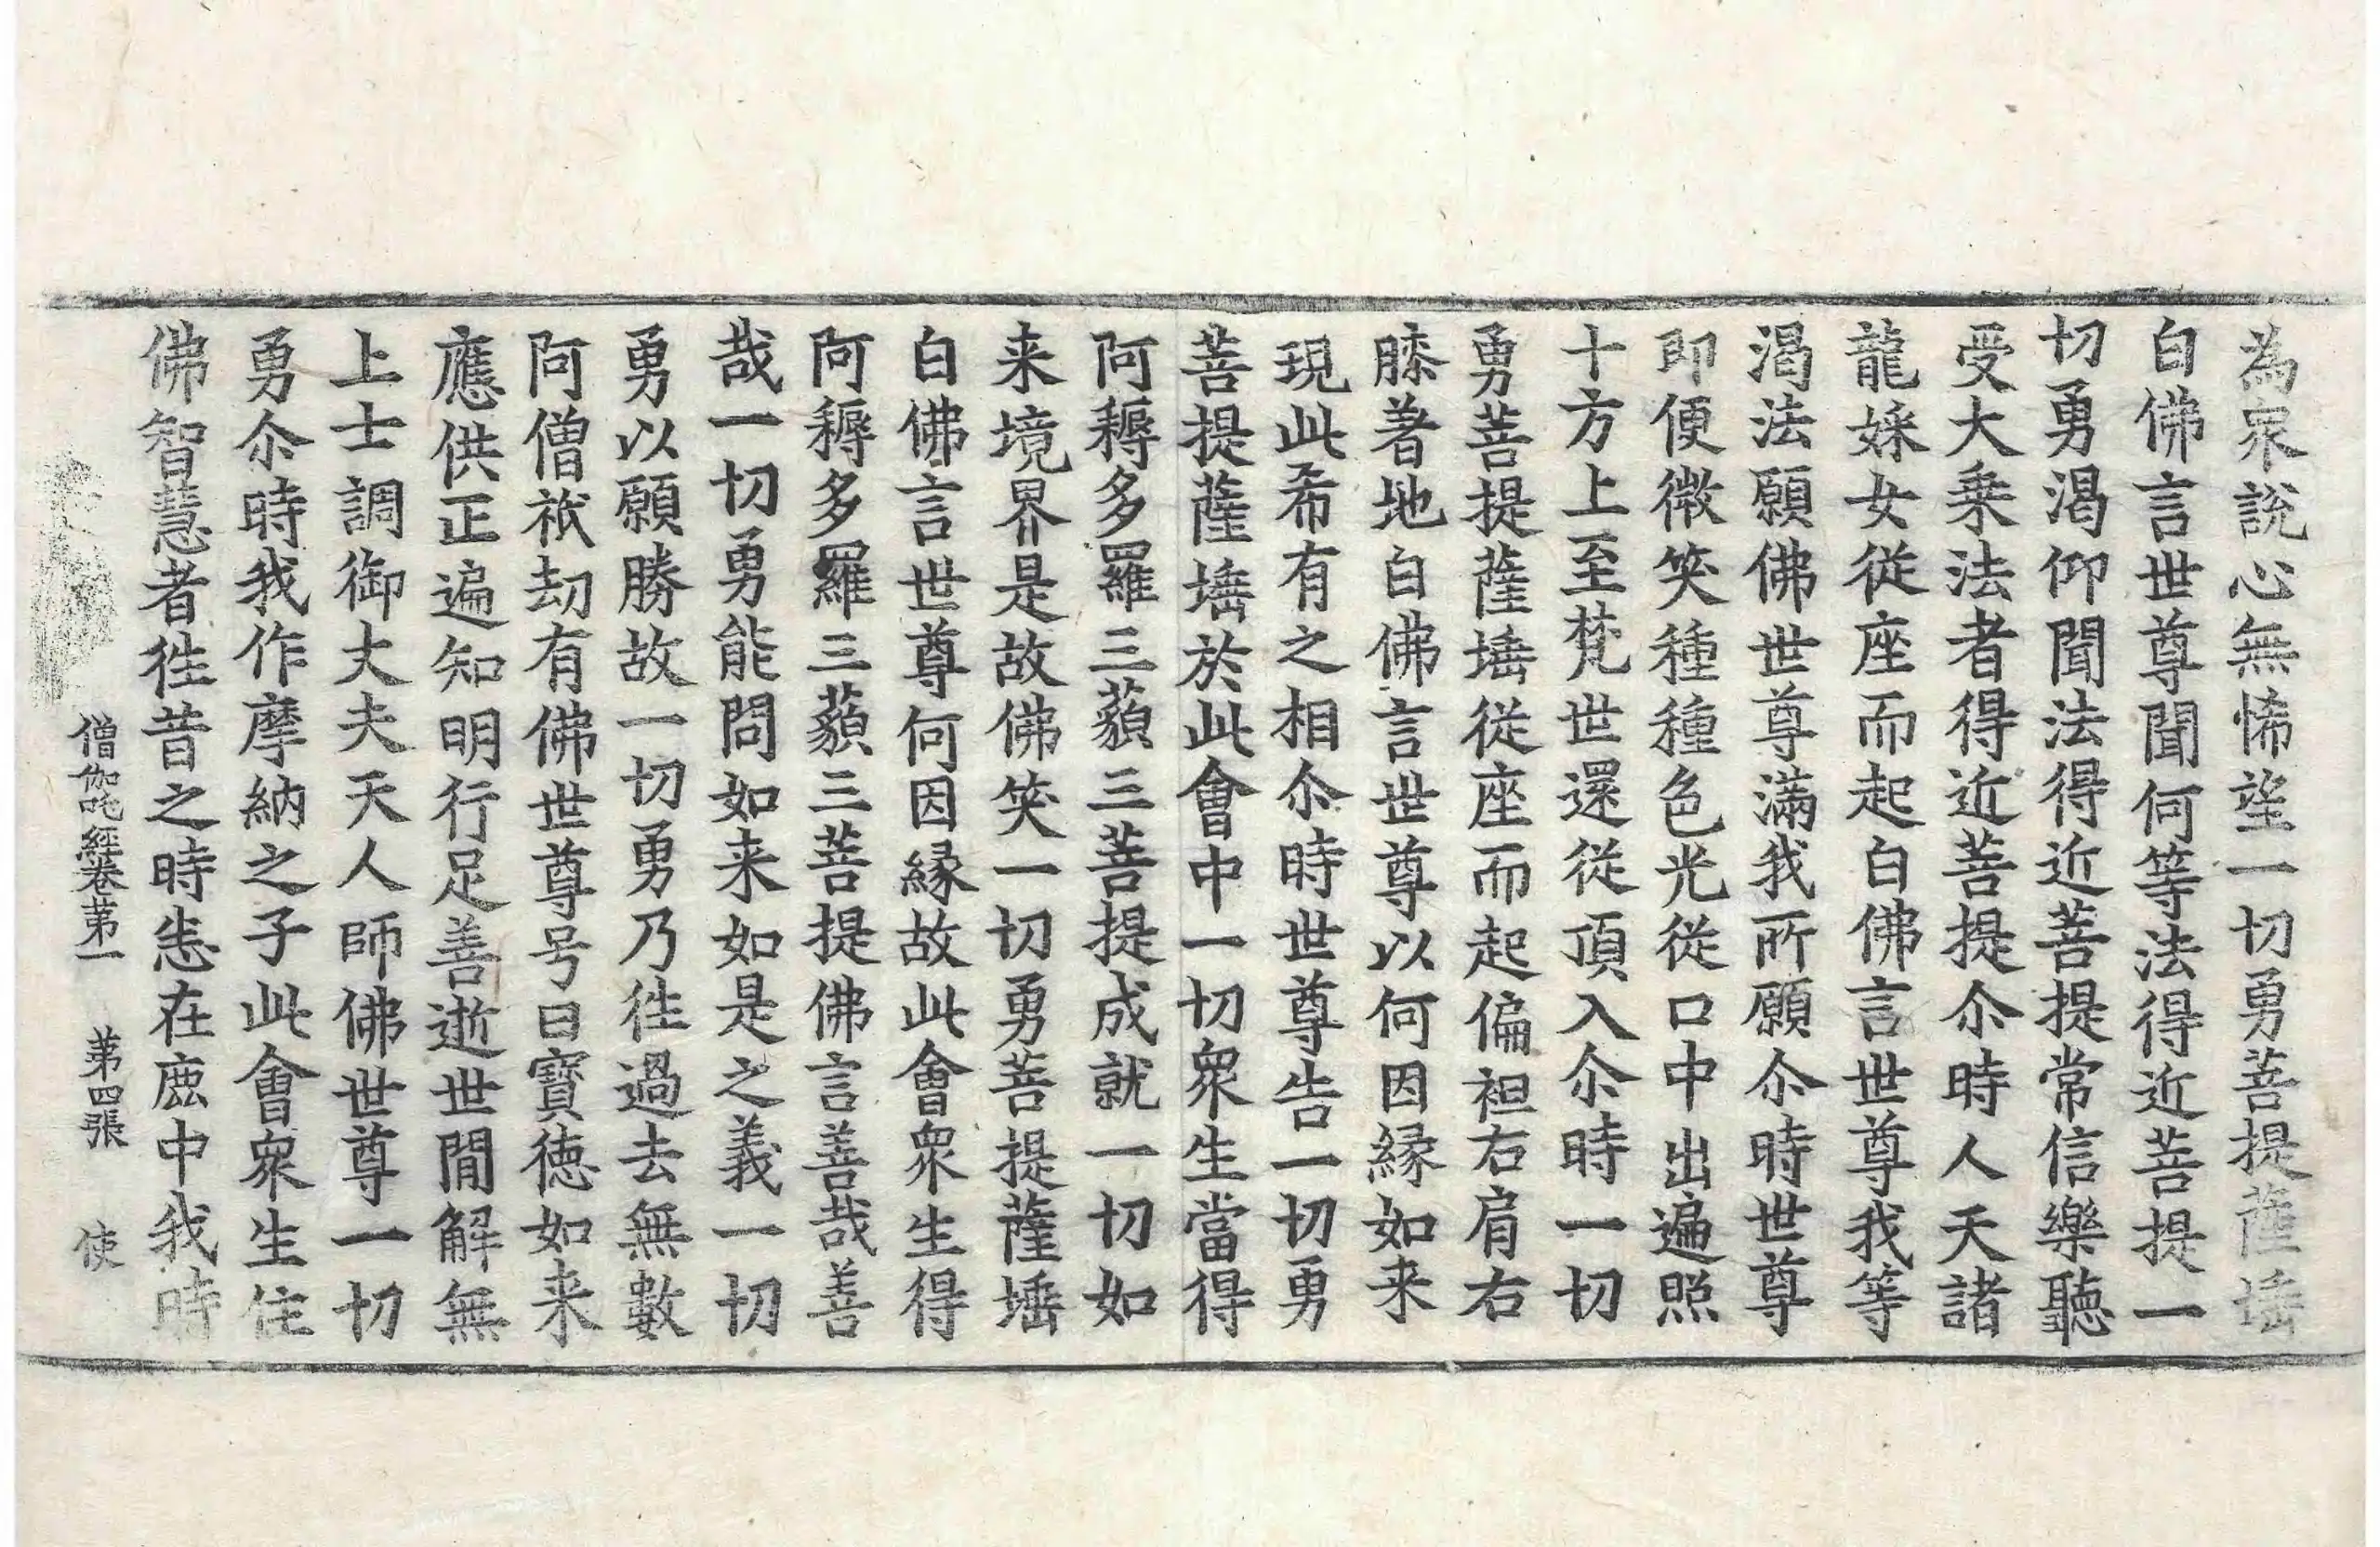 為衆說心無悕望一切勇菩提薩埵
白佛言世尊聞何等法得近菩提一
切勇渴仰聞法得近菩提常信樂聽
受大乗法者得近菩提尒時人天諸
龍婇女従座而起白佛言世尊我等
渴法願佛世尊滿我所願尒時世尊
即便微笑種種色光従口中出遍照
十方上至梵世還従頂入尒時一切
勇菩提薩埵従座而起偏袒右肩右
膝著地白佛言世尊以何因縁如来
現此希有之相尒時世尊告一切勇
菩提薩埵於此會中一切衆生當得
阿耨多羅三藐三菩提成就一切如
来境界是故佛笑一切勇菩提薩埵
白佛言世尊何因縁故此會衆生得
阿耨多羅三藐三菩提佛言善哉善
哉一切勇能問如来如是之義一切
勇以願勝故一切勇乃徃過去無數
阿僧祇劫有佛世尊号曰寶徳如来
應供正遍知明行足善逝世間解無
上士調御丈夫天人師佛世尊一切
勇尒時我作摩納之子此會衆生住
佛智慧者徃昔之時悉在鹿中我時
僧伽吒經卷苐一 苐四張 使